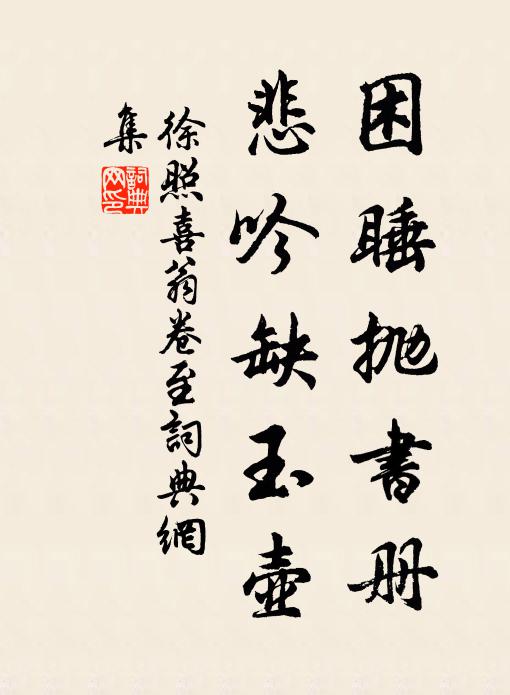 困睡抛書册
悲吟缺玉壺
徐照喜翁卷至詞典網
集
詞典
网印